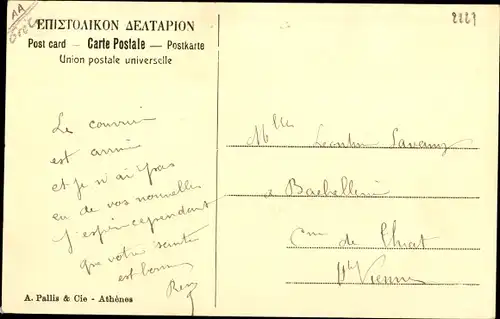 ΕΠΙΣΤΟΛΙΚΟΝ ΔΕΛΤΑΡΙΟΝ
Post card — Carte Postale — Postkarte
Union postale universelle
Le courrier
est arrivé
et je n'ai pas
eu de vos nouvelles
J'espère cependant
que votre santé
est bonne
A. Pallis & Cie - Athènes
AA
2227
Mlle
a
Cne de
Hte Vienne